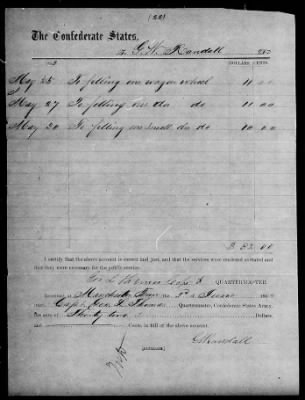 (22)
The Confederate States,
To G. W. Randall Dr.
DOLLARS CENTS
May 25 To filling one wagon wheel 11 00
May 27 To filling one do do 11 00
May 30 To filling one small do do 10 00
$ 32.00
I certify that the above account is correct and just, and that the services were rendered as stated and
that they were necessary for the public service.
QUARTERMASTER
RECEIVED at Manchester Tenn 3d June 186
Capt. Geo. Quartermaster, Confederate States Army,
the sum of Thirty two Dollars
Cents, in full of the above account.
(DUPLICATE)
G W Randall